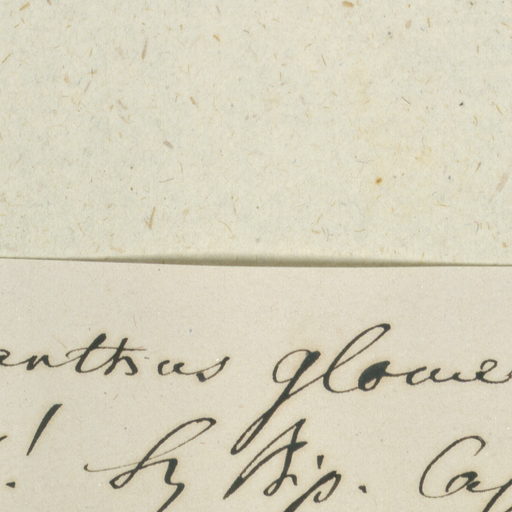 anthus glome
! Sz Bip. Cap